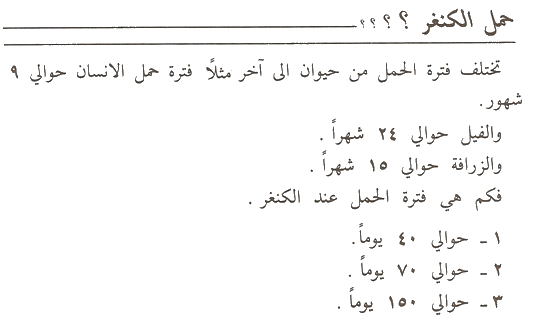 حمل الكنغر ؟ ؟ ؟ ؟
تختلف فترة الحمل من حيوان الى آخر مثلًا فترة حمل الانسان حوالي ٩
شهور.
والفيل حوالي ٢٤ شهراً .
والزرافة حوالي ١٥ شهراً .
فكم هي فترة الحمل عند الكنغر .
١ ـ حوالي ٤٠ يوماً.
٢ ـ حوالي ٧٠ يوماً .
٣ ـ حوالي ١٥٠ يوماً .